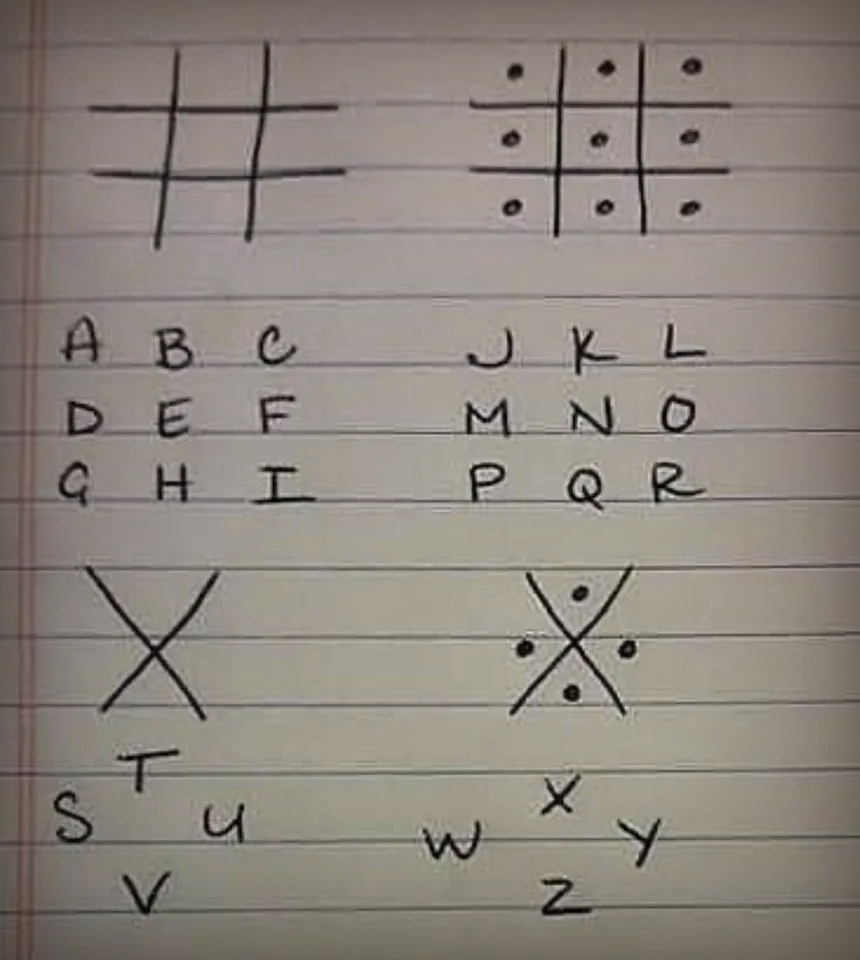 A B C
D E F
G H I
J K L
M N O
P Q R
T
S U
V
X
W Y
Z